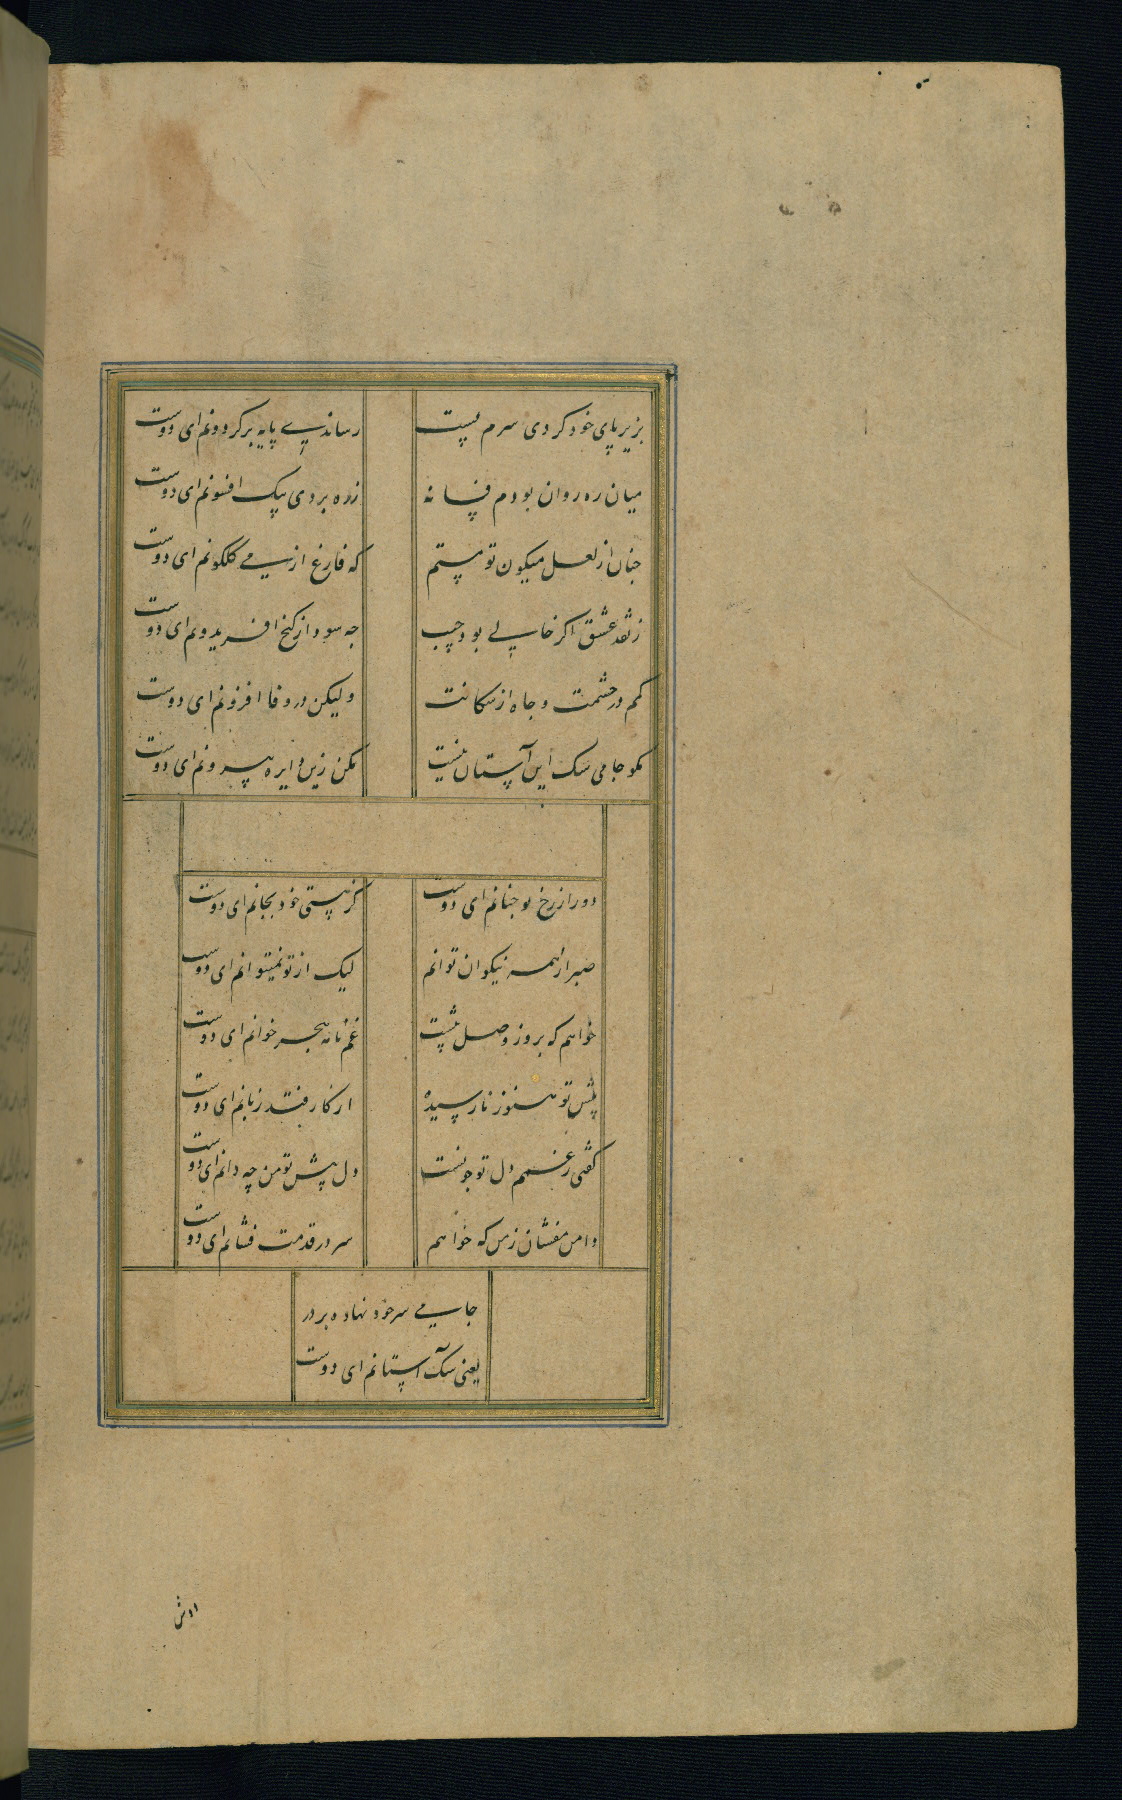 بزیر پای خود کردی سرم پست رساندی پایه بر کردونم ای دوست
میان ره روان بودم فسانه ز ره بردی بیک افسونم ای دوست
جنان از لعل میکون تو مستم که فارغ از می کلکونم ای دوست
ز نقد عشق اکر خالی بود جیب جه سود از کنج افریدونم ای دوست
کمم در حشمت و جاه از سکانت ولیکن در وفا افزونم ای دوست
مکو جامی سک این آستان نیست مکن زین دایره بیرونم ای دوست
دور از رخ تو جنانم ای دوست کز هستی خود بجانم ای دوست
صبر از همه نیکوان توانم لیک از تو نمیتوانم ای دوست
خواهم که بروز وصل پیشت غم نامه هجر خوانم ای دوست
پیش تو هنوز نارسیده از کار فتد زبانم ای دوست
کفتی ز غمم دل تو جونست دل پیش تو من چه دانم ای دوست
دامن مفشان ز من که خواهم سر در قدمت فشانم ای دوست
جامی سر خود نهاده بر در
یعنی سک آستانم ای دوست